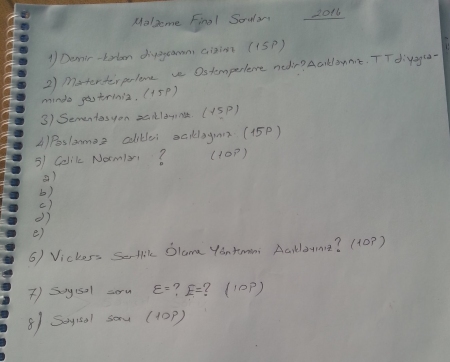 Malzeme Final Soruları 2016
1) Demir-karbon diyagramını çiziniz (15P)
2) Martemperleme ve Ostemperleme nedir? Açıklayınız. TT diyagra-
mında gösteriniz. (15P)
3) Sementasyon açıklayınız (15P)
4) Paslanmaz çelikleri açıklayınız (15P)
5) Çelik Normları ? (10P)
a)
b)
c)
d)
e)
6) Vickers Sertlik Ölçme Yöntemini Açıklayınız? (10P)
7) Sayısal soru E=? E=? (10P)
8) Sayısal soru (10P)